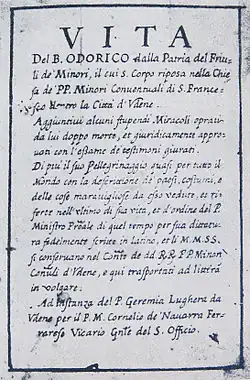 VITA
Del B. ODORICO dalla Patria del Friu
li de' Minori, il cui S. Corpo riposa nella Chie
sa de' PP. Minori Conuentuali di S. France
sco dentro la Città d'Vdene.
Aggiuntiui alcuni stupendi Miracoli oprati
da lui doppo morte, et giuridicamente appro
uati con l'essame de testimoni giurati.
Di più il suo Pellegrinaggio quasi per tutto il
Mondo con la descrittione de' paesi, costumi, e
delle cose marauigliose da esso vedute, et ri
ferte nell'vltimo di sua vita, et d'ordine del P.
Ministro Proale di quel tempo per sua dettatura
fidelmente scritte in latino, et li M.M.SS.
si conseruano nel Conto de dd RR. PP. Minori
Conuli d'Vdene, e qui trasportati ad litterā
in volgare.
Ad instanza del P. Geremia Lughera da
Vdene per il P. M. Cornelio de Nauarra Fer
rarese Vicario Gnle del S. Officio.